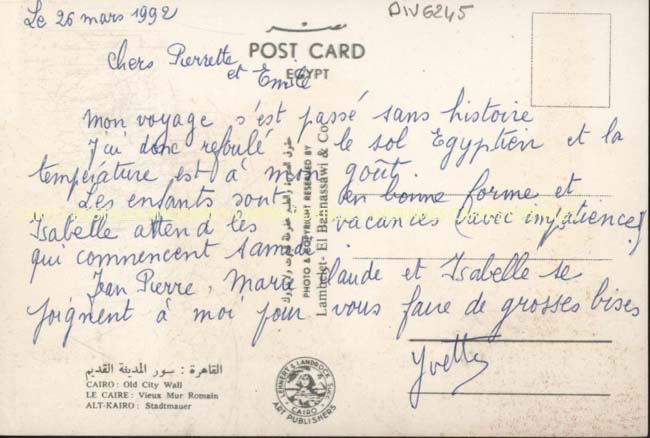 Le 26 mars 1992
DIV6245
POST CARD
EGYPT
chers Pierrette
et Emile
mon voyage s'est passé sans histoire
J'ai donc refoulé le sol Egyptien et la
température est à mon goût.
Les enfants sont en bonne forme et
Isabelle attend les vacances (avec impatience)
qui commencent samedi.
Jean Pierre, Marie Claude et Isabelle se
joignent à moi pour vous faire de grosses bises
Yvette
PHOTO & COPYRIGHT RESERVED BY
Lambelet - El Bannassawi & Co.
القاهرة : سور المدينة القديم
CAIRO: Old City Wall
LE CAIRE: Vieux Mur Romain
ALT-KAIRO: Stadtmauer
LEHNERT & LANDROCK Succ.
CAIRO
ART PUBLISHERS